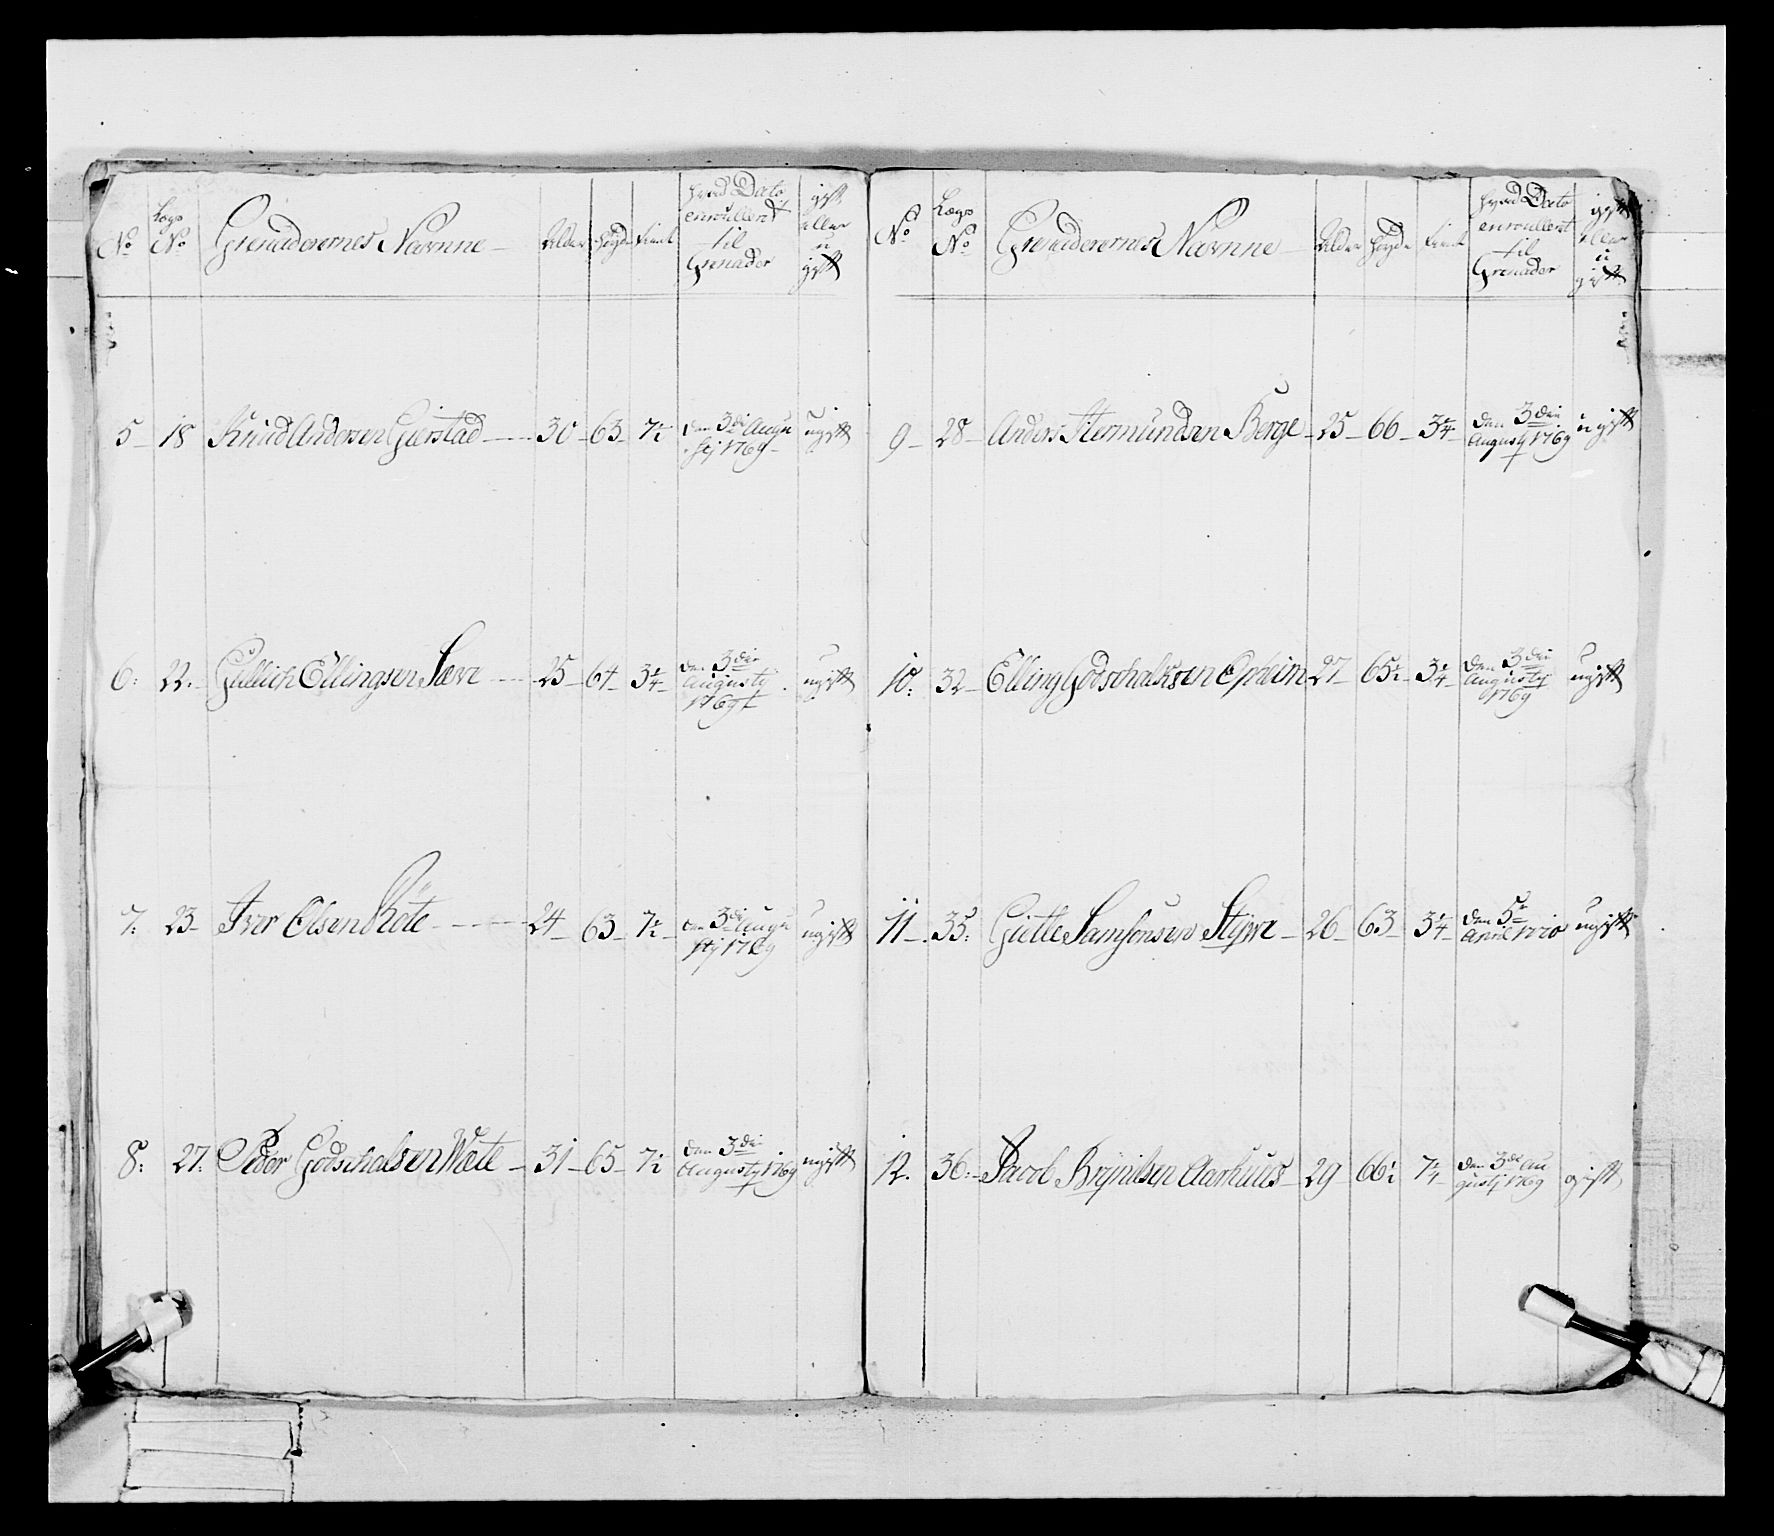 No
Lægs No
Grenaderernes Navnne
Alder
Høyde
hvad Dato enroullerit til Grenader
gift eller u gift
5 18 Knud Andersen Gierstad 30 63 7½ den 3die Augu
stj 1769 ugift
6: 22. Gullich Ellingsen Sæve 25 64 3¼ den 3die
Augustij
1769 ugift
7: 23 Iver Olsen Røte 24 63 7½ den 3die Augu
stj 1769 ugift
8: 27: Peder Godschalsen Wæte 31 65 7½ den 3die
Augustj 1769 ugift
No
Lægs No
Grenaderernes Navnne
Alder
Høyde
hvad Dato enroullerit til Grenader
gift eller u gift
9 28 Anders Stermundsen Berge 25 66 3¼ den 3die
Augustj 1769 ugift
10: 32 Elling Godschalksen Opheim 27 65½ 3¼ den 3die
Augustij
1769 ugift
11 35: Gietle Samsonsen Styve 26 63 3¼ den 5te
April 1770 ugift
12. 36: Jacob Brynilsen Aarhuus 29 66½ 7¼ den 3de Au
gustj 1769 gift